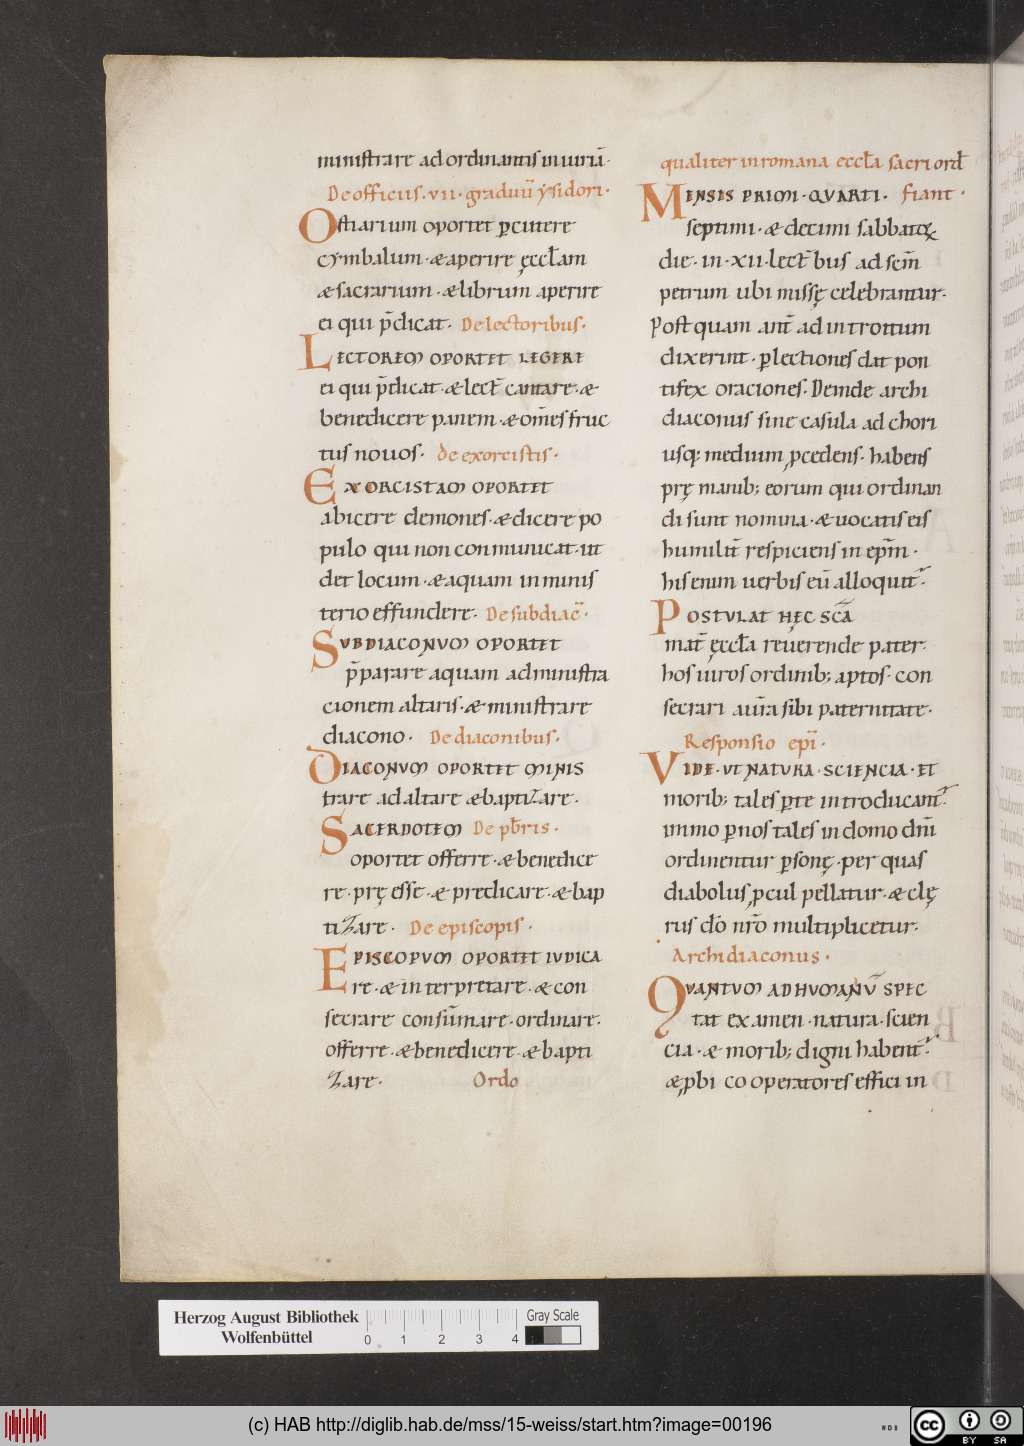 ministrare ad ordinantis iniuriā·
De officiis·vii·graduū ysidori·
Ostiarium oportet ꝑcutere
cymbalum·& aperire ęccłam
& sacrarium·& librum aperire
ei qui p̄dicat· De lectoribus·
LECTOREM OPORTET LEGERE
ei qui p̄dicat·& lect̄ cantare·&
benedicere panem·& om̄es fruc
tus nouos· de exorcistis·
EXORCISTAM OPORTET
abicere demones·& dicere po
pulo qui non conmunicat·ut
det locum·& aquam in minis
terio effundere· De subdiac̄·
SUBDIACONUM OPORTET
p̄parare aquam ad ministra
cionem altaris·& ministrare
diacono· De diaconibus·
DIACONUM OPORTET MINIS
trare ad altare & baptizare·
SACERDOTEM De pb̄ris·
oportet offerre·& benedice
re·prę esse·& predicare·& bap
tizare· De episcopis·
EPISCOPUM OPORTET IUDICA
re·& interpretare·& con
secrare consūmare·ordinare·
offerre·& benedicere·& bapti
zare· Ordo
qualiter in romana eccła sacri ord̄
MENSIS PRIMI·QVARTI· fiant·
septimi·& decimi sabbatoꝝ
die·in·xii·lect̄bus ad scm̄
petrum ubi missę celebrantur·
Postquam ant̄ ad introitum
dixerint·ꝑ lectiones dat pon
tifex oraciones·Deinde archi
diaconus sine casula ad chori
usq; medium ꝓcedens·habens
prę manib; eorum qui ordinan
di sunt nomina·& uocatis eis
humilit̄ respiciens in ep̄m·
his enim uerbis eū alloquit̄·
POSTULAT HĘC SC̄A
mat̄ ęccła reuerende pater·
hos uiros ordinib; aptos·con
secrari aūra sibi paternitate·
Responsio epī·
VIDE·UT NATURA·SCIENCIA·ET
morib; tales ꝑ te introducant̄·
immo ꝑ nos tales in domo dn̄i
ordinentur ꝑsonę·per quas
diabolus ꝓcul pellatur·& clę
rus dō nr̄o multiplicetur·
Archidiaconus·
QUANTUM AD HUMANŪ SPEC
tat examen·natura·scien
cia·& morib; digni habent̄·
& ꝓbi cooperatores effici in
Herzog August Bibliothek
Wolfenbüttel
0 1 2 3 4
Gray Scale
(c) HAB http://diglib.hab.de/mss/15-weiss/start.htm?image=00196
cc BY SA